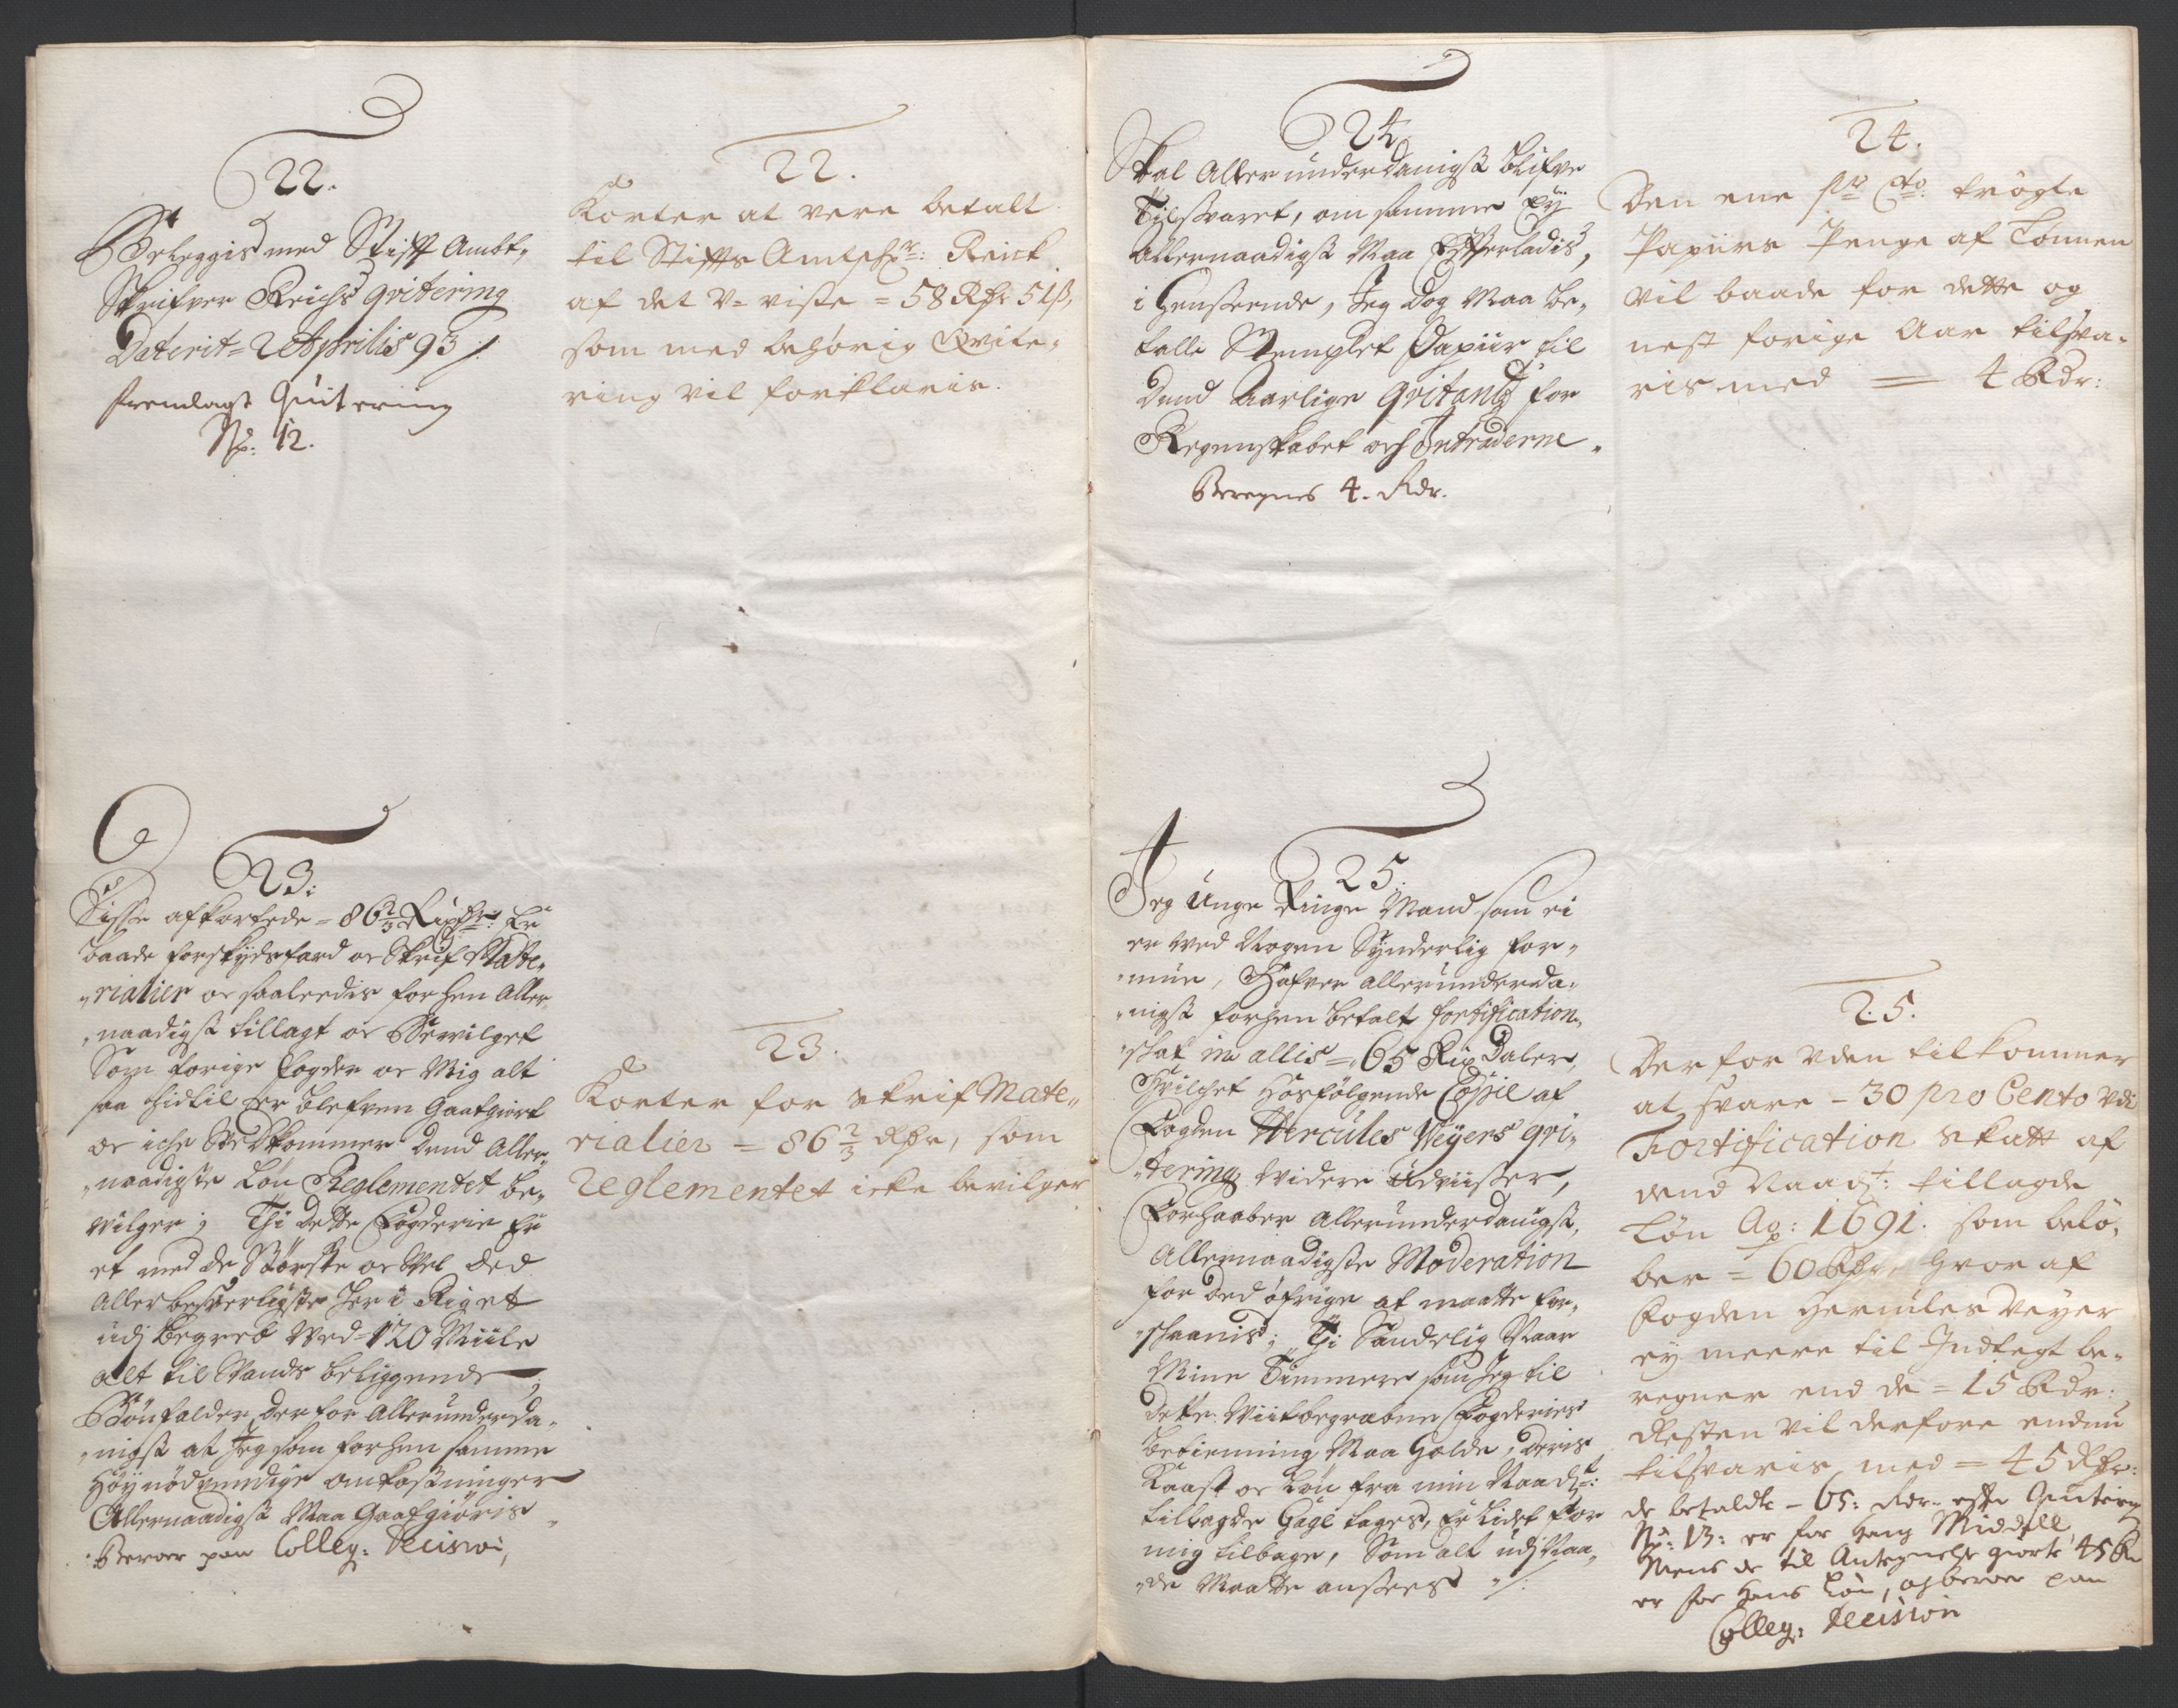 22.
Beleggis med Stifft Ambt„
Skrifver Reichs Qvitering
Daterit = 2 Aprilis 93 /.
fremlagt Quitering
No: 12.
22.
Korter at vere betalt
til Stiffts Amtschr: Reick
af det V= visse = 58 Rdr 51 ß,
som med behörig Qvite„
ring vil forklaris.
23:
Disse afkortede = 86 2/3 Rixdr: Er
baade forskydsfard oc Skrif Mate„
„rialier oc saaleedis forhen Aller„
„naadigst tillagt oc Bevilget
Som forige fogder oc Mig alt
saa hidtil er blefven Gaatgiort
oc iche Vedkommer Dend Aller„
„naadigste Løn Reglementet be„
vilger; Thi dette Fogderie Er
et med de Störste oc Vel ded
Aller besverligste her i Riget
udj begreb Ved 120 Miile
alt til Vands beliggende;
Bönfalder derfor Allerunderda„
„nigst at Jeg som forhen samme
Höynödvendige omkostninger
Allernaadigst Maa Gaatgiöris.
Beroer paa Colleg: Decision,
23.
Korter for skrif Mate„
rialier = 86 2/3 Rdr, som
Reglementet icke bevilger
24.
Skal Aller underdanigst blifve
Tilsvaret, om samme ey
Allernaadigst Maa Efterladis,
i Henseende, Jeg dog Maa be„
talle Stemplet Papiir til
Dend Aarlige Qvitantz for
Regenskabet och Intraderne.
Beregnes 4. Rdr.
24.
Den ene pr Cto: trögte
Papiirs Penge af Lönnen
vil baade for dette og
nest forige Aar tilsva„
ris med = 4 Rdr:
25.
Jeg Unge Ringe Mand som ei
er ved Nogen Synderlig for„
„mue, Hafver allerunderda„
„nigst forhen betalt fortification„
„skat in allis = 65 Rix Daler,
Hvilchet hosfölgende Copie af
Fogden Hercules Weyers Qvi„
„tering videre Udviisser,
Forhaaber Allerunderdanigst,
Allernaadigste Moderation
for ded öfrige at maatte for„
„skaanis; Thi Sandelig Naar
Mine Timmere som Jeg til
dette Viitbegrebne Fogderies
betienning Maa Holde, deris
Kaast oc Løn fra min Naadst:
tillagde Gage tages, Er Lidet for
mig tilbage, Som alt udj Naa„
„de Maatte ansees /:
25.
Der for uden tilkommer
at svare = 30 pro Cento udi
Fortification skatt af
dend Naadst: tillagde
Løn Ao: 1691. som belö„
ber = 60 Rdr, Hvor af
Fogden Hercules Weyer
ey meere til Indtegt be„
regner end de = 15 Rdr:
Resten vil derfore endnu
tilsvaris med = 45 Rdr:
de betaldte – 65: Rdr. efter Quitering
No: 13: er for hans Middell
Mens de til Antegnelse giorte 45 Rd
er for hans Løn, og beroer paa
Colleg: Decision